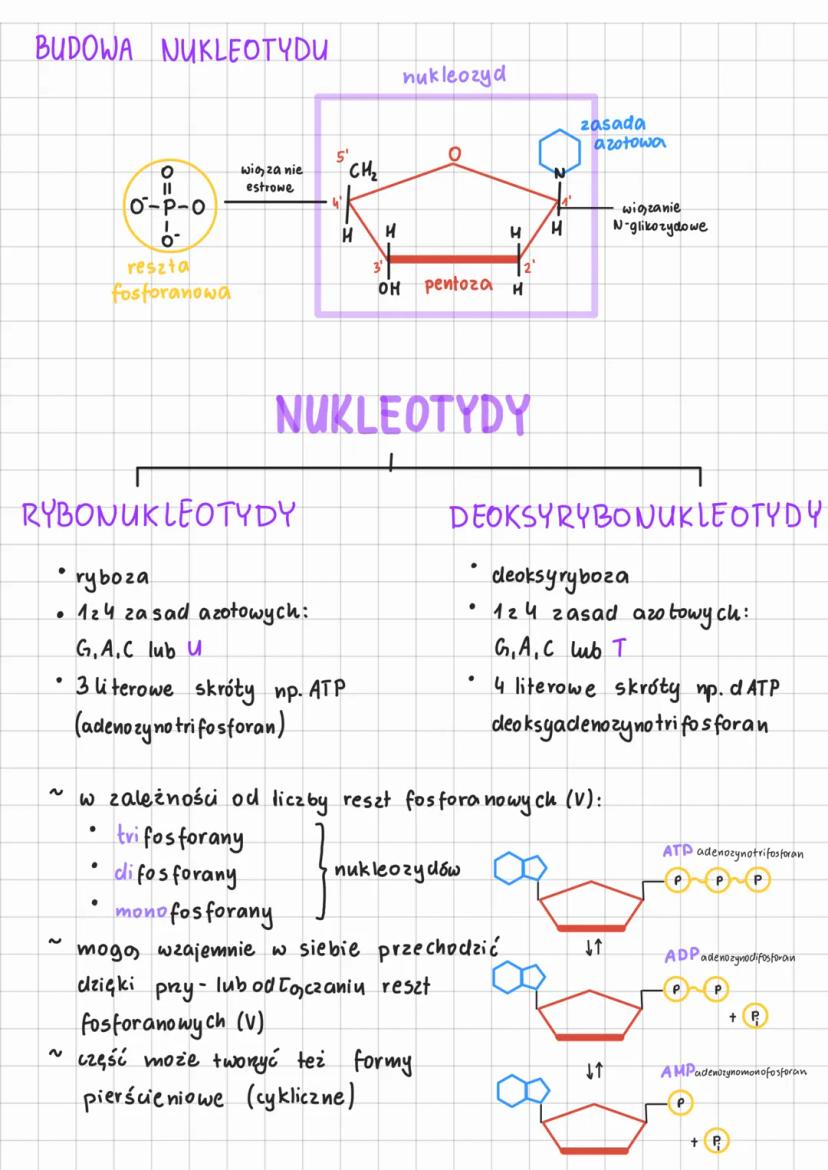 BUDOWA NUKLEOTYDU
nukleozyd
zasada
azotowa
5'
CH₂
O
N
wiązanie
estrowe
O
O⁻-P-O
O⁻
4'
1'
H
H
H
H
wiązanie
N-glikozydowe
3'
2'
OH
pentoza
H
reszta
fosforanowa
NUKLEOTYDY
RYBONUKLEOTYDY
• ryboza
• 1 z 4 zasad azotowych:
G, A, C lub U
• 3 literowe skróty np. ATP
(adenozynotrifosforan)
DEOKSYRYBONUKLEOTYDY
• deoksyryboza
• 1 z 4 zasad azotowych:
G, A, C lub T
• 4 literowe skróty np. dATP
deoksyadenozynotrifosforan
~ w zależności od liczby reszt fosforanowych (V):
• trifosforany
• difosforany
• monofosforany
nukleozydów
~ mogą wzajemnie w siebie przechodzić
dzięki przy- lub odłączaniu reszt
fosforanowych (V)
~ część może tworzyć też formy
pierścieniowe (cykliczne)
ATP adenozynotrifosforan
P P P
↓↑
ADP adenozynodifosforan
P P
+ Pi
↓↑
AMP adenozynomonofosforan
P
+ Pi